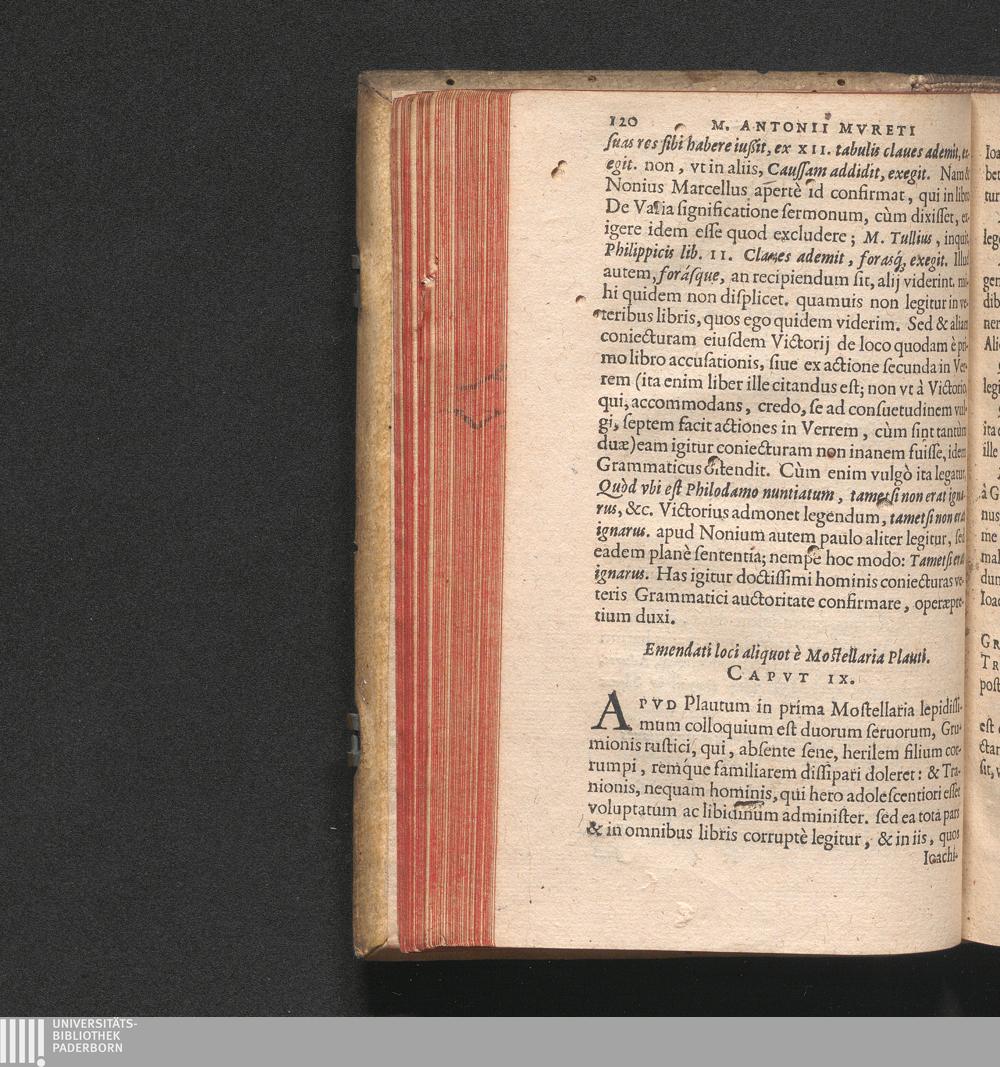 120 M. ANTONII MVRETI
suas res sibi habere iußit, ex XII. tabulis claues ademit, ex-
egit. non, vt in aliis, Caussam addidit, exegit. Nam &
Nonius Marcellus apertè id confirmat, qui in libro
De Varia significatione sermonum, cùm dixisset, ex-
igere idem esse quod excludere; M. Tullius, inquit,
Philippicis lib. II. Claues ademit, forasq́; exegit. Illud
autem, forásque, an recipiendum sit, alij viderint. mi-
hi quidem non displicet. quamuis non legitur in ve-
teribus libris, quos ego quidem viderim. Sed & aliam
coniecturam eiusdem Victorij de loco quodam è pri-
mo libro accusationis, siue ex actione secunda in Ver-
rem (ita enim liber ille citandus est; non vt à Victorio,
qui, accommodans, credo, se ad consuetudinem vul-
gi, septem facit actiones in Verrem, cùm sint tantùm
duæ) eam igitur coniecturam non inanem fuisse, idem
Grammaticus ostendit. Cùm enim vulgò ita legatur,
Quòd vbi est Philodamo nuntiatum, tametsi non erat igna-
rus, &c. Victorius admonet legendum, tametsi non erat
ignarus. apud Nonium autem paulo aliter legitur, sed
eadem planè sententia; nempe hoc modo: Tametsi erat
ignarus. Has igitur doctissimi hominis coniecturas ve-
teris Grammatici auctoritate confirmare, operæpre-
tium duxi.
Emendati loci aliquot è Mostellaria Plauti.
CAPVT IX.
APVD Plautum in prima Mostellaria lepidissi-
mum colloquium est duorum seruorum, Gru-
mionis rustici, qui, absente sene, herilem filium cor-
rumpi, remq́ue familiarem dissipari doleret: & Tra-
nionis, nequam hominis, qui hero adolescentiori esset
voluptatum ac libidinum administer. sed ea tota pars
& in omnibus libris corruptè legitur, & in iis, quos
Ioachi-
Ioa
bet
tur
lege
gen
dib
nen
Alie
legi
ita c
ille
à G
nus
me
mal
dun
Ioac
GR
TR
post
est
ctan
sit, v
UNIVERSITÄTS-
BIBLIOTHEK
PADERBORN